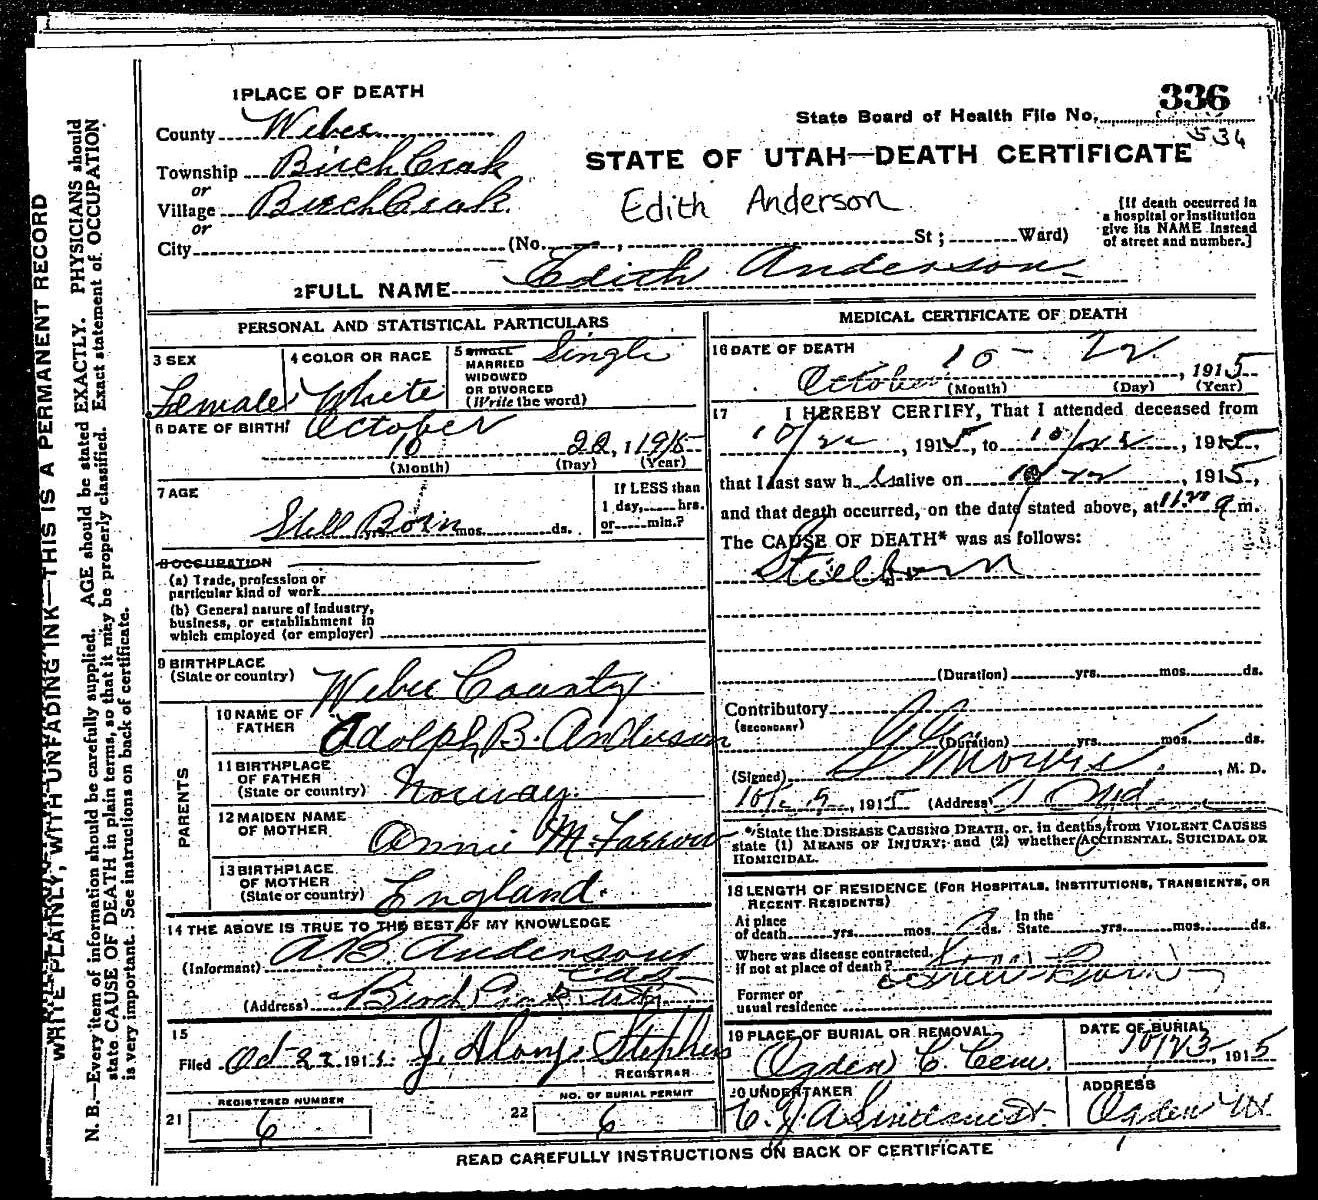 1 PLACE OF DEATH
County Weber
Township Birch Creek
or
Village Birch Creek
or
City (No. , St ; Ward)
State Board of Health File No. 336
534
STATE OF UTAH—DEATH CERTIFICATE
Edith Anderson
[If death occurred in
a hospital or institution
give its NAME instead
of street and number.]
2 FULL NAME Edith Anderson
PERSONAL AND STATISTICAL PARTICULARS
3 SEX
Female
4 COLOR OR RACE
White
5 SINGLE
MARRIED
WIDOWED
OR DIVORCED
(Write the word)
Single
6 DATE OF BIRTH
October
10 22, 1915
(Month) (Day) (Year)
7 AGE
Still Born
yrs. mos. ds.
If LESS than
1 day, hrs.
or min.?
8 OCCUPATION
(a) Trade, profession or
particular kind of work
(b) General nature of industry,
business, or establishment in
which employed (or employer)
9 BIRTHPLACE
(State or country)
Weber County
PARENTS
10 NAME OF
FATHER
Adolph B. Anderson
11 BIRTHPLACE
OF FATHER
(State or country)
Norway.
12 MAIDEN NAME
OF MOTHER
Annie McFarrow
13 BIRTHPLACE
OF MOTHER
(State or country)
England.
14 THE ABOVE IS TRUE TO THE BEST OF MY KNOWLEDGE
(Informant) A B. Anderson
(Address) Birch Creek
15
Filed Oct 23 191 J. Stephens
REGISTRAR
21 REGISTERED NUMBER
6
22 NO. OF BURIAL PERMIT
6
MEDICAL CERTIFICATE OF DEATH
16 DATE OF DEATH 10 - 22
October , 1915
(Month) (Day) (Year)
17 I HEREBY CERTIFY, That I attended deceased from
10/22, 1915, to 10/22, 1915,
that I last saw h alive on 10 22, 1915,
and that death occurred, on the date stated above, at 11.20 a m.
The CAUSE OF DEATH* was as follows:
Stillborn
(Duration) yrs. mos. ds.
Contributory
(SECONDARY)
(Duration) yrs. mos. ds.
(Signed) Morris, M. D.
, 1915 (Address)
*State the DISEASE CAUSING DEATH, or, in deaths from VIOLENT CAUSES
state (1) MEANS OF INJURY; and (2) whether ACCIDENTAL, SUICIDAL OR
HOMICIDAL.
18 LENGTH OF RESIDENCE (FOR HOSPITALS, INSTITUTIONS, TRANSIENTS, OR
RECENT RESIDENTS)
At place
of death yrs. mos. ds.
In the
State yrs. mos. ds.
Where was disease contracted,
if not at place of death? Still Born
Former or
usual residence
19 PLACE OF BURIAL OR REMOVAL
Ogden C. Cem.
DATE OF BURIAL
10/23, 1915
20 UNDERTAKER
ADDRESS
Ogden Ut.
READ CAREFULLY INSTRUCTIONS ON BACK OF CERTIFICATE
WRITE PLAINLY, WITH UNFADING INK—THIS IS A PERMANENT RECORD
N. B.—Every item of information should be carefully supplied. AGE should be stated EXACTLY. PHYSICIANS should
state CAUSE OF DEATH in plain terms, so that it may be properly classified. Exact statement of OCCUPATION
is very important. See instructions on back of certificate.